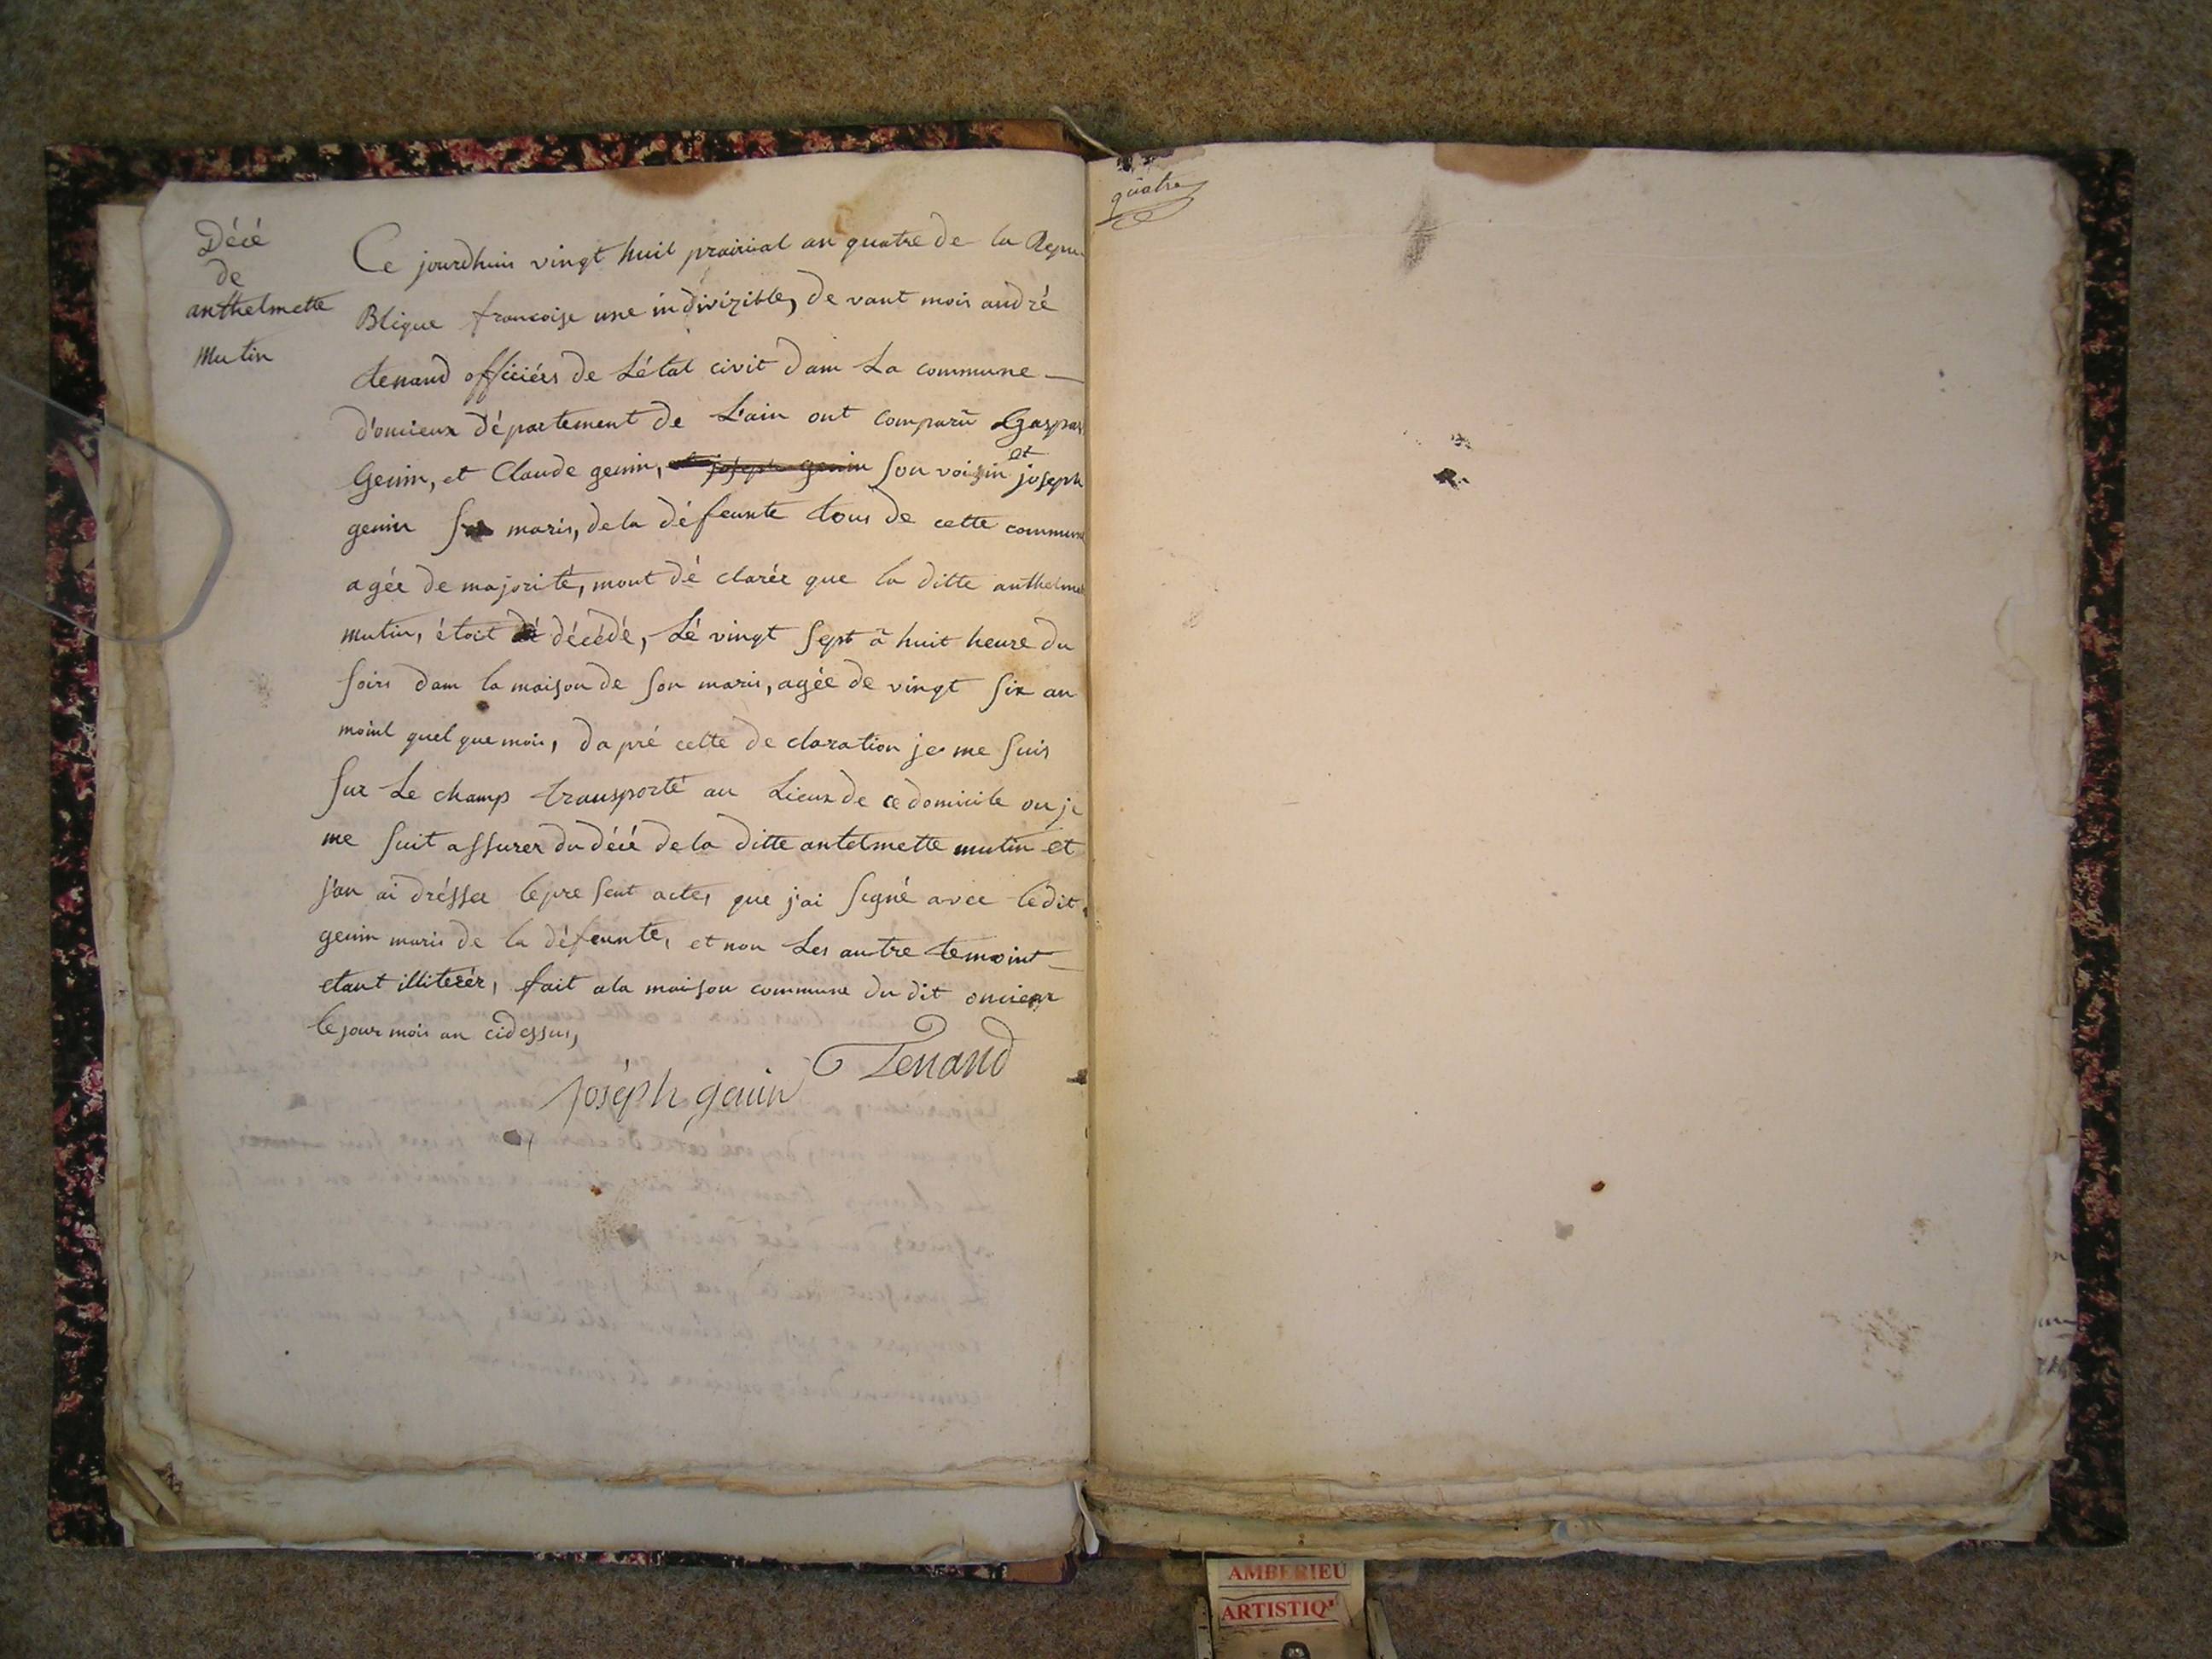 Décé
de
anthelmette
Mutin
Ce jourdhuis vingt huil prairial an quatre de la Repu
Blique francoise une indivizible, de vant mois andré
tenand officiées de L'étal civit dam La commune
d'oncieux département de L'ain ont comparû Gaspar
Genin, et Claude genin, son voisin et joseph
genin maris, de la défeunte tous de cette commune
agée de majorité, mont dé clarée que la ditte anthelme
mutin, étoit décédé, Lé vingt sept à huit heure du
soirs dam la maison de son maris, agée de vingt six an
moint quel que mois, da pré cette de claration je me suis
sur Le champs transporté au Lieux de ce domicile ou je
me suit assurer du décé de la ditte antelmette mutin et
j'an ai drésser le pre sent acte, que j'ai segné avec le dit
genin maris de la défeunte, et non Les autre temoint
etant illiterér, fait a la maison commune du dit oncieux
le jour mois an cidessus,
Tenand
joséph genin
quatre
AMBERIEU
ARTISTIQ